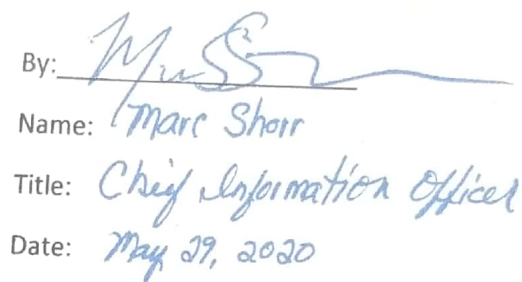 By:
Name: Marc Shorr
Title: Chief Information Officer
Date: May 29, 2020